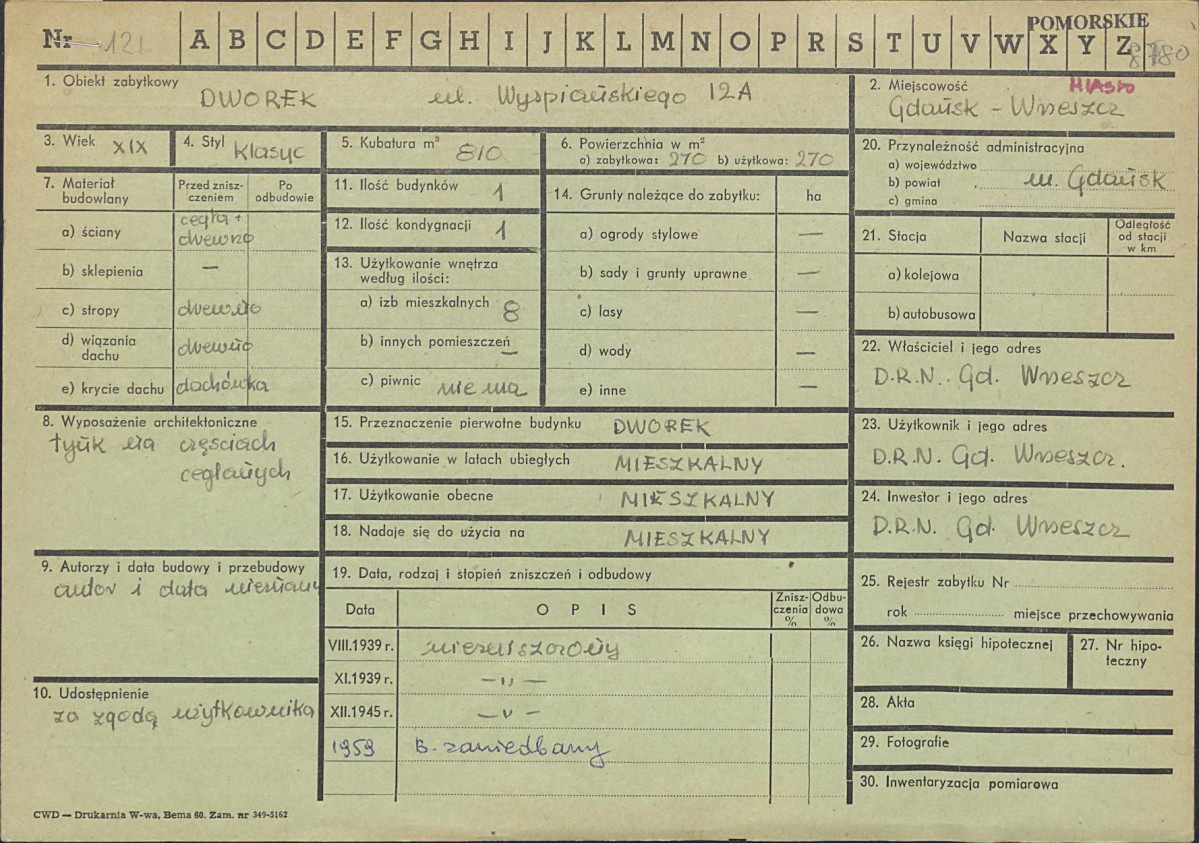 POMORSKIE
Nr 121 A B C D E F G H I J K L M N O P R S T U V W X Y Z 8780
1. Obiekt zabytkowy
DWOREK ul. Wyspiańskiego 12A
2. Miejscowość MIASTO
Gdańsk - Wrzeszcz
3. Wiek XIX
4. Styl klasyc
5. Kubatura m³ 810
6. Powierzchnia w m²
a) zabytkowa: 270 b) użytkowa: 270
20. Przynależność administracyjna
a) województwo
b) powiat m. Gdańsk
c) gmina
7. Materiał budowlany
Przed zniszczeniem
Po odbudowie
a) ściany cegła + drewno
b) sklepienia —
c) stropy drewno
d) wiązania dachu drewno
e) krycie dachu dachówka
11. Ilość budynków 1
12. Ilość kondygnacji 1
13. Użytkowanie wnętrza
według ilości:
a) izb mieszkalnych 8
b) innych pomieszczeń —
c) piwnic nie ma
14. Grunty należące do zabytku: ha
a) ogrody stylowe —
b) sady i grunty uprawne —
c) lasy —
d) wody —
e) inne —
21. Stacja
Nazwa stacji
Odległość od stacji w km
a) kolejowa
b) autobusowa
22. Właściciel i jego adres
D.R.N. Gd. Wrzeszcz
8. Wyposażenie architektoniczne
tynk na częściach
ceglanych
15. Przeznaczenie pierwotne budynku DWOREK
16. Użytkowanie w latach ubiegłych MIESZKALNY
17. Użytkowanie obecne MIESZKALNY
18. Nadaje się do użycia na MIESZKALNY
23. Użytkownik i jego adres
D.R.N. Gd. Wrzeszcz.
24. Inwestor i jego adres
D.R.N. Gd. Wrzeszcz
9. Autorzy i data budowy i przebudowy
autor i data nieznany
19. Data, rodzaj i stopień zniszczeń i odbudowy
Data OPIS Zniszczenia % Odbudowa %
VIII.1939 r. niezniszczony
XI.1939 r. —„—
XII.1945 r. —„—
1959 B. zaniedbany
10. Udostępnienie
za zgodą użytkownika
25. Rejestr zabytku Nr
rok miejsce przechowywania
26. Nazwa księgi hipotecznej
27. Nr hipoteczny
28. Akta
29. Fotografie
30. Inwentaryzacja pomiarowa
CWD — Drukarnia W-wa, Bema 60. Zam. nr 349-5162